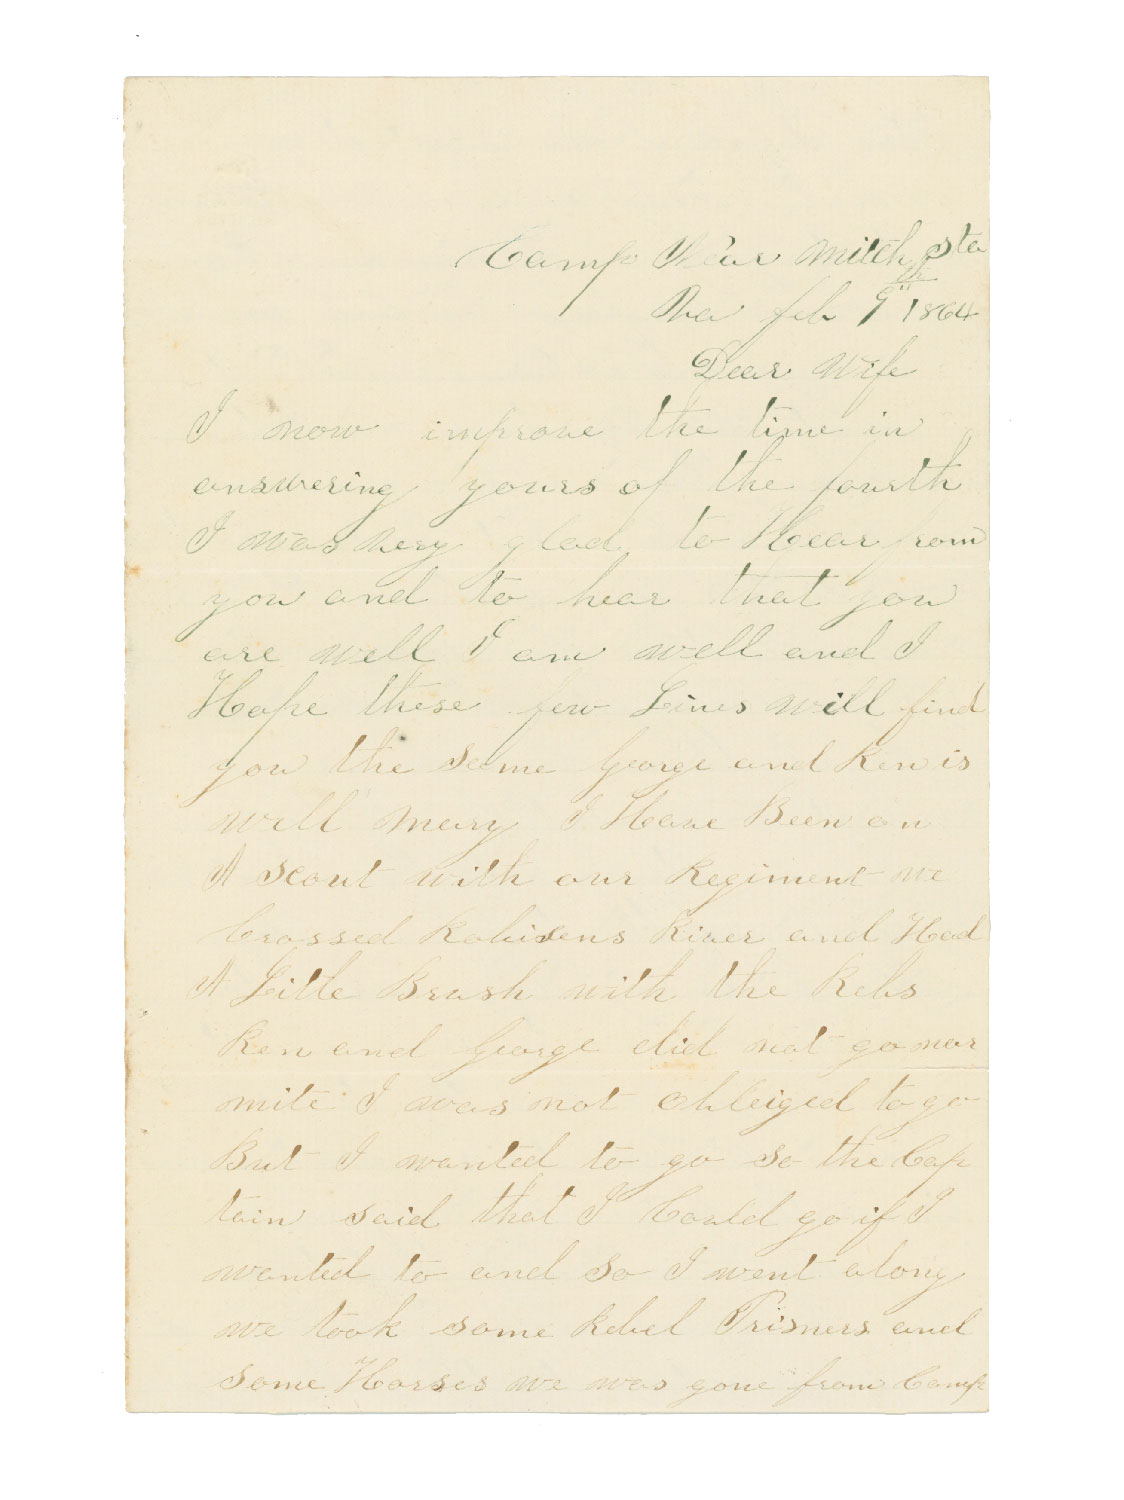 Camp Near Mitch Sta
Va feb 9th 1864
Dear Wife
I now improve the time in
answering yours of the fourth
I was very glad to Hear from
you and to hear that you
are well I am well and I
Hope these few Lines will find
you the same George and Ren is
well Mary I Have Been on
A scout with our Regiment we
Crossed Robisens River and Had
A Little Brush with the Rebs
Ren and George did not go nor
mite I was not obleiged to go
But I wanted to go so the Cap
tain said that I Could go if I
wanted to and so I went along
we took some Rebel Prisners and
some Horses we was gone from Camp